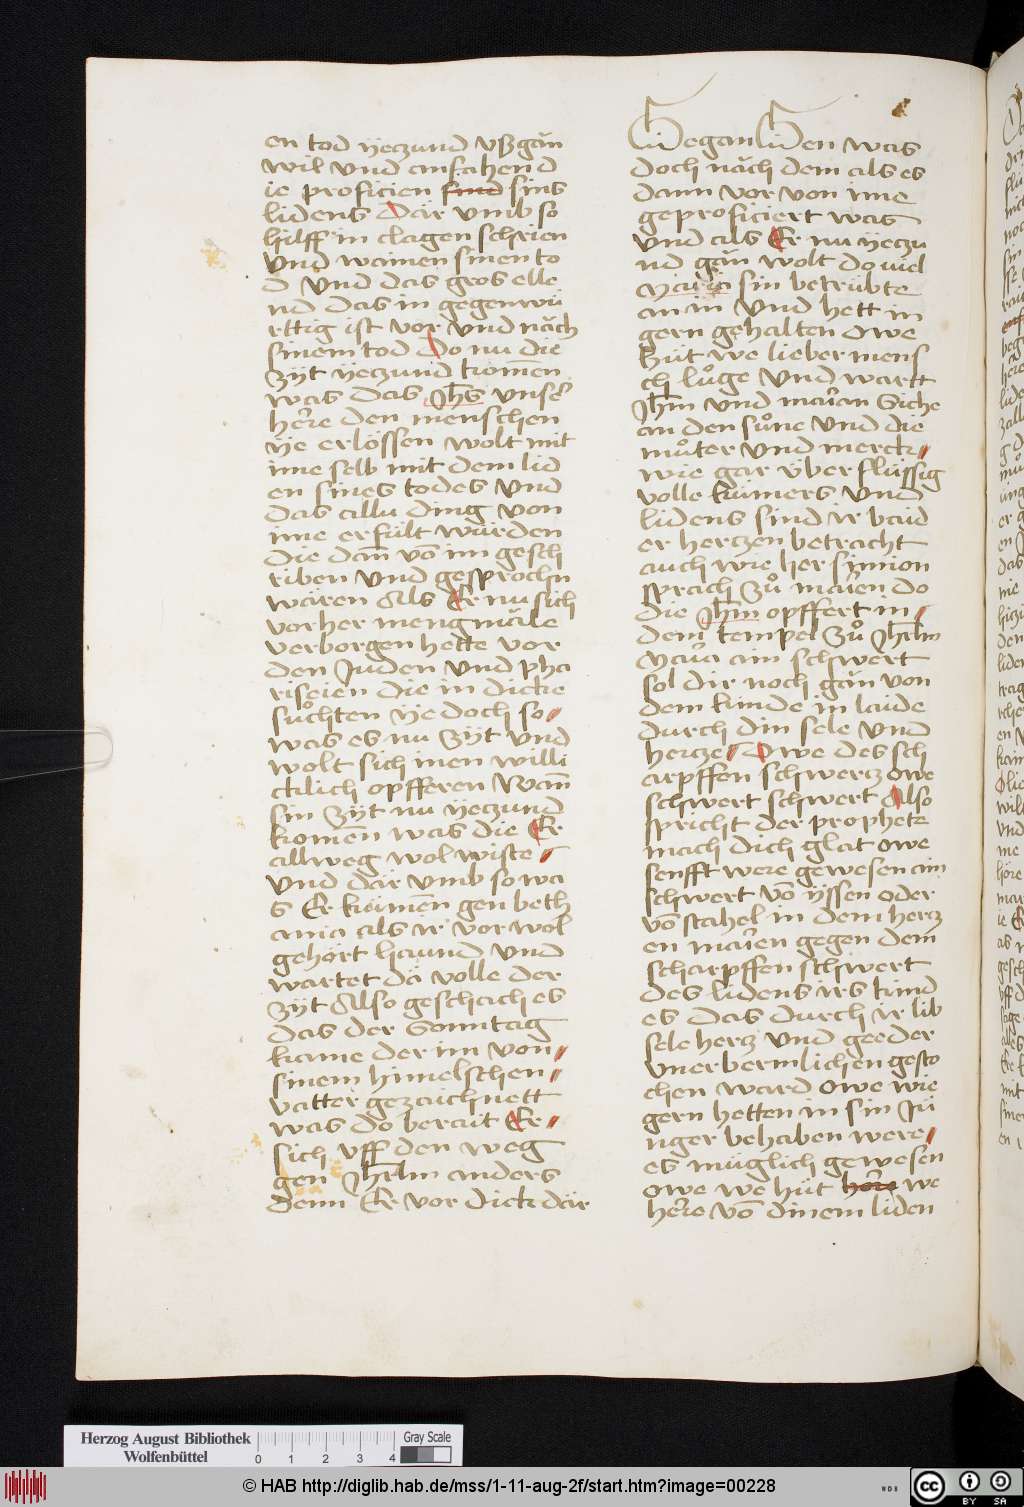 en tod yeczund vßgăn
wil vnd anfahend
ie proficien sind sins
lidens Dăr vmb so
hilff in clagen schrien
vnd wainen sinen to
d vnd das gros elle
nd das in gegenwü
rttig ist vor vnd năch
sinem tod Do nu die
zÿt ÿeczund komen
was das Jhs vnser
here den menschen
ÿe erlössen wolt mit
ime selb mit dem lid
en sines todes vnd
das allu ding von
ime erfült würden
die dañ võ im gesch
riben vnd gesprochn
wăren Als Er nu sich
vorher meng măle
verborgen hette vor
den Juden vnd pha
riseien die in dicke
suͦchten ÿe doch so
was es nu zÿt vnd
wolt sich inen willi
cklich opfferen Wañ
sin zÿt nu ÿeczund
komen was die Er
allweg wol wiste
vnd dăr vmb so wa
s Er kumen gen beth
ania als ir vor wol
gehört haund vnd
wartet dă volle der
zÿt Also geschach es
das der Sonntag
kame der im von
sinem himelschen
vatter gezaichnett
was do berait Er
sich vff den weg
gen Jhrlm anders
denn Er vor dick dăr
Gegangen was
doch năch dem als es
dann vor von ime
geproficiert was
vnd als Er nu ÿeczu
nd găn wolt do viel
Maria sin betrübte
an in vnd hett in
gern gehalten Owe
hüt we lieber mens
ch luͦge vnd wartt
Jhm vnd marian Siche
an den suͦne vnd die
muͦter vnd merck
wie gar über flüssig
volle kumers vnd
lidens sind ir baid
er herczen betracht
auch wie her simion
sprach zuͦ marien do
die Jhm opffert in
dem tempel zuͦ Jhrlm
Maria ain schwert
sol dir noch găn von
dem kinde in laide
durch din sele vnd
hercze Owe des sch
arpffen schwercz owe
schwert schwert Also
spricht der prophete
mach dich glat owe
senfft were gewesen ain
schwert võ ÿssen oder
võ stahel in dem hercz
en marien gegen dem
scharpffen schwert
des lidens irs kind
es das durch ir lib
sele hercz vnd geeder
vnerbermlichen gesto
chen ward owe wie
gern hetten in sin Jü
nger behaben were
es müglich gewesen
owe we hüt here we
here võ dinem liden
Herzog August Bibliothek
Wolfenbüttel
0 1 2 3 4
Gray Scale
© HAB http://diglib.hab.de/mss/1-11-aug-2f/start.htm?image=00228
WDB
CC BY SA